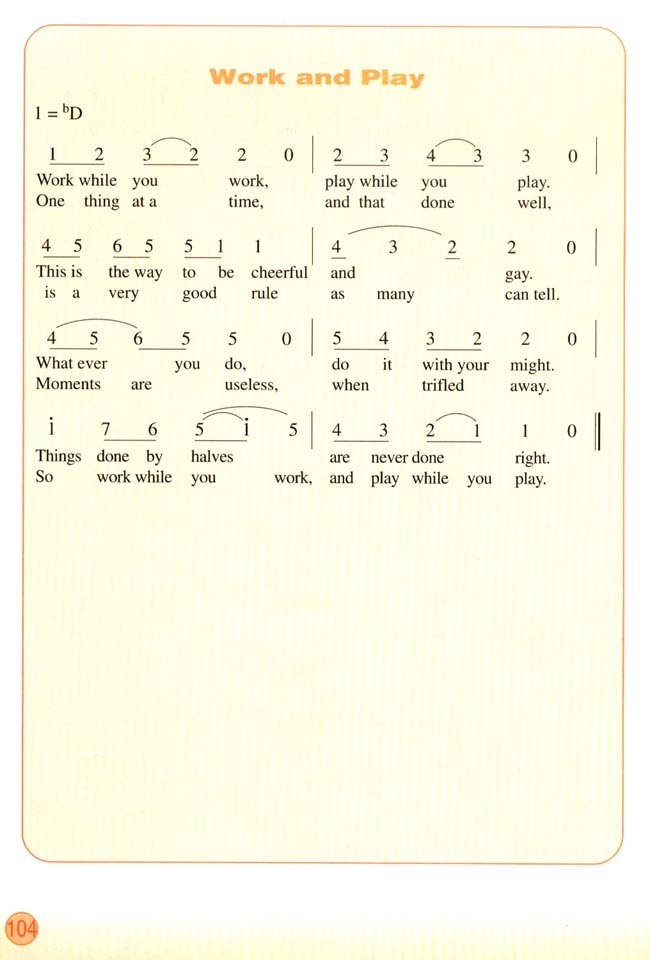 Work and Play
1 = ᵇD
1 2 3 2 2 0 | 2 3 4 3 3 0 |
Work while you work, play while you play.
One thing at a time, and that done well,
4 5 6 5 5 1 1 | 4 3 2 2 0 |
This is the way to be cheerful and gay.
is a very good rule as many can tell.
4 5 6 5 5 0 | 5 4 3 2 2 0 |
What ever you do, do it with your might.
Moments are useless, when trifled away.
i 7 6 5 i 5 | 4 3 2 1 1 0 ‖
Things done by halves are never done right.
So work while you work, and play while you play.
104